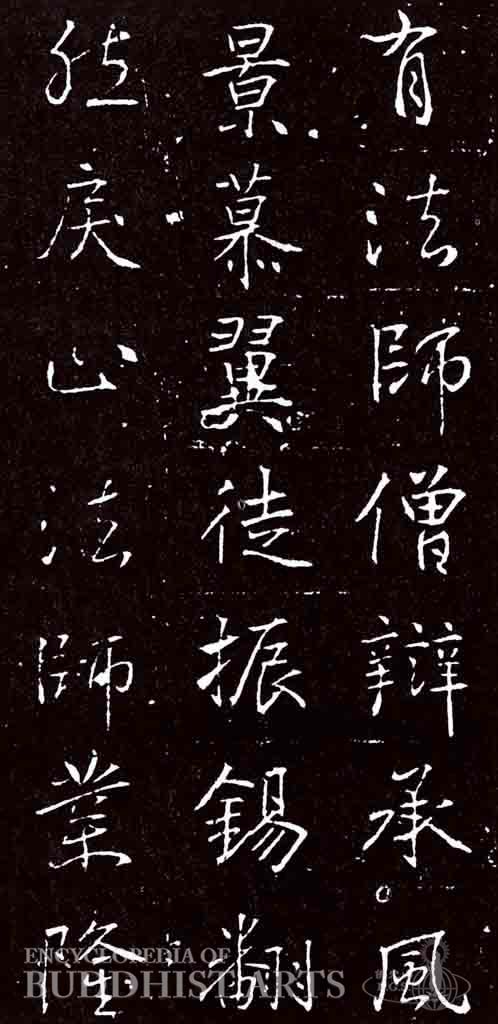 有法師僧辯承風
景慕翼徒振錫翻
然戾止法師業隆
ENCYCLOPEDIA OF
BUDDHIST ARTS